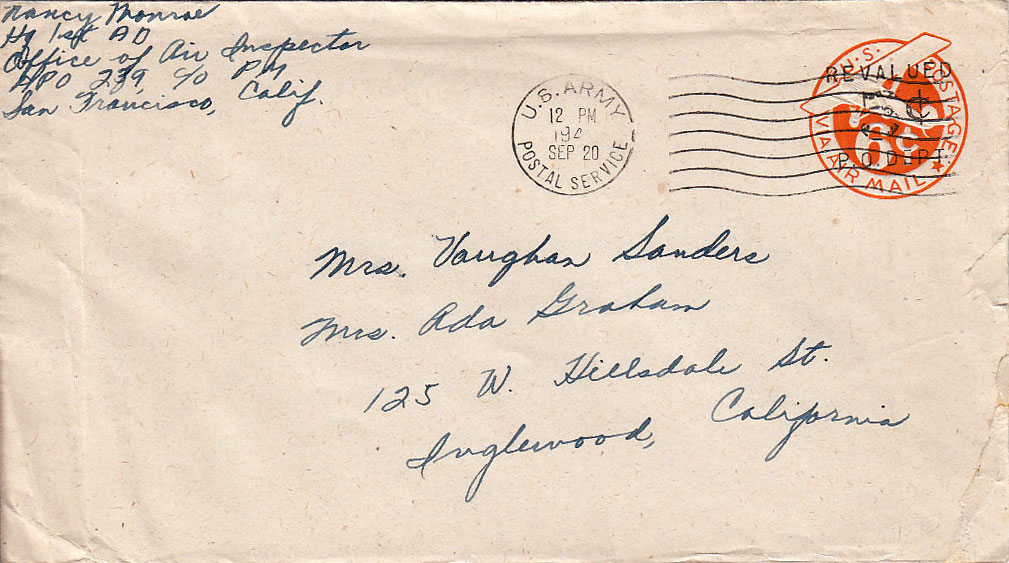 Nancy Monroe
Hq 1st AD
Office of Air Inspector
APO 239, c/o PM
San Francisco, Calif.
U.S. ARMY
12 PM
194
SEP 20
POSTAL SERVICE
U.S. POSTAGE
REVALUED
6¢
P.O. DEPT.
VIA AIR MAIL
Mrs. Vaughan Sanders
Mrs. Ada Graham
125 W. Hillsdale St.
Inglewood, California